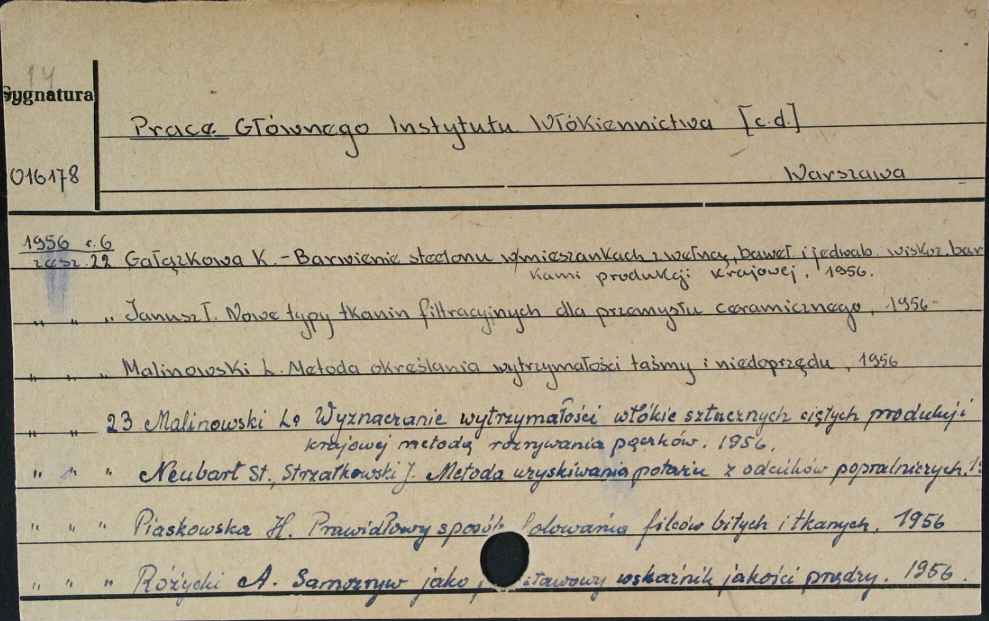 14
Sygnatura
Prace Głównego Instytutu Włókiennictwa [c.d.]
016178
Warszawa
1956 r. 6
zesz. 22 Gałązkowa K. - Barwienie steelonu w mieszankach z wełną, baweł i jedwab. wiskoz. bar
kami produkcji krajowej, 1956.
" " " Janusz T. Nowe typy tkanin filtracyjnych dla przemysłu ceramicznego, 1956-
" " " Malinowski L. Metoda określania wytrzymałości taśmy i niedoprzędu, 1956
" " 23 Malinowski L. Wyznaczanie wytrzymałości włókie sztucznych ciętych produkcji
krajowej metodą rozrywania pęczków. 1956.
" " " Neubart St., Strzałkowski J. Metoda uzyskiwania potażu z odcieków popralniczych. 1
" " " Piaskowska H. Prawidłowy sposób folowania filców bitych i tkanych. 1956
" " " Różycki A. Samozryw jako stawowy wskaźnik jakości przędzy. 1956.